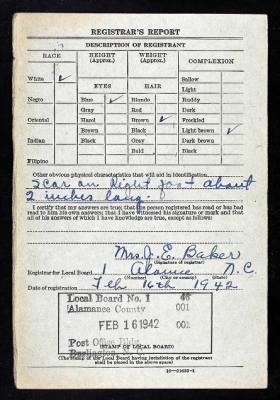 REGISTRAR'S REPORT
DESCRIPTION OF REGISTRANT
RACE HEIGHT (Approx.) WEIGHT (Approx.) COMPLEXION
White ✓ Sallow
EYES HAIR Light
Negro Blue ✓ Blonde Ruddy
Gray Red Dark
Oriental Hazel Brown ✓ Freckled
Brown Black Light brown ✓
Indian Black Gray Dark brown
Bald Black
Filipino
Other obvious physical characteristics that will aid in identification
Scar on Right foot about
2 inches long
I certify that my answers are true; that the person registered has read or has had
read to him his own answers; that I have witnessed his signature or mark and that
all of his answers of which I have knowledge are true, except as follows:
Mrs. J. E. Baker
(Signature of registrar)
Registrar for Local Board 1 Alamance N. C.
(Number) (City or county) (State)
Date of registration Feb 16th 1942
Local Board No. 1 46
Alamance County 001
FEB 16 1942 001
Post Office Bldg.
Burlington, N. C.
(STAMP OF LOCAL BOARD)
(The stamp of the Local Board having jurisdiction of the registrant
shall be placed in the above space)